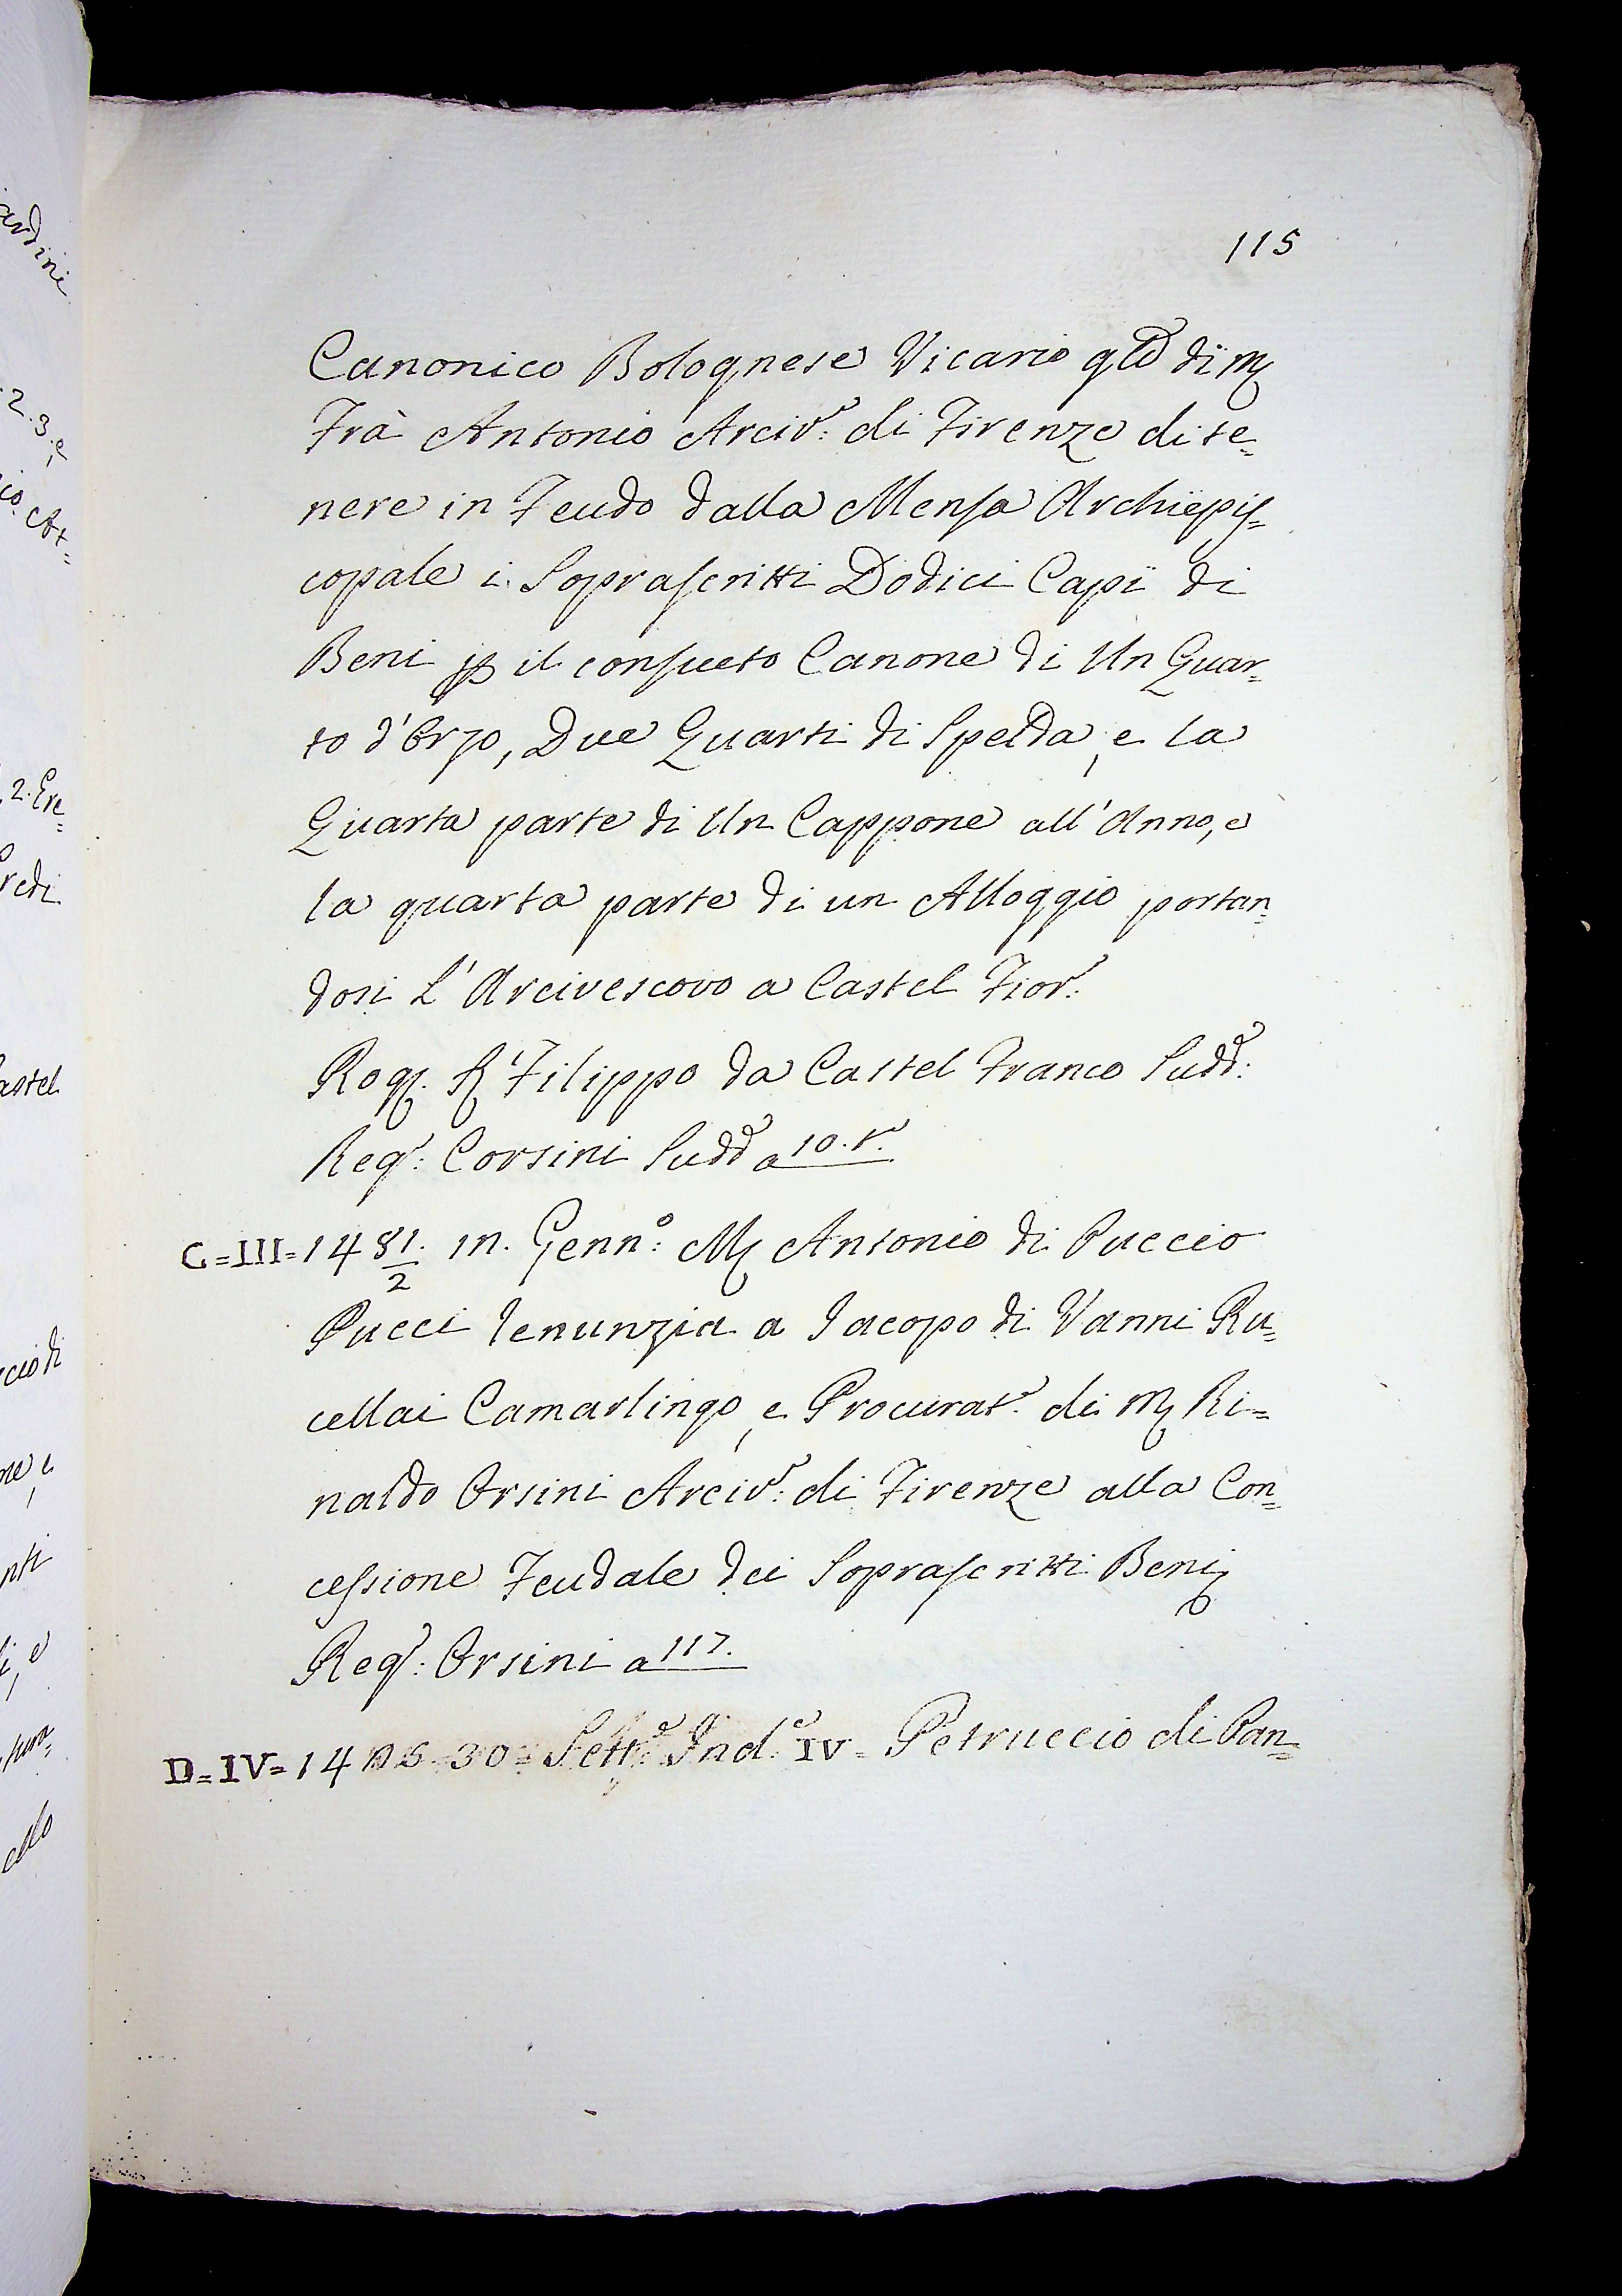 115
Canonico Bolognese Vicario gle di M
Frà Antonio Arciv: di Firenze di te=
nere in Feudo dalla Mensa Archiepis=
copale i Soprascritti Dodici Capi di
Beni p il consueto Canone di Un Quar=
to d'Orzo, Due Quarti di Spelda, e la
Quarta parte di Un Cappone all'Anno, e
la quarta parte di un Alloggio portan=
dosi L'Arcivescovo a Castel Fior:
Rog. S Filippo da Castel Franco Sudd:
Reg: Corsini Sudd a 10. t.
C=III=1481/2. in. Genn: M Antonio di Puccio
Pucci renunzia a Iacopo di Vanni Ru=
cellai Camarlingo, e Procurat. di M Ri=
naldo Orsini Arciv: di Firenze alla Con=
cessione Feudale dei Soprascritti Beni
Reg: Orsini a 117.
D=IV= 30= Sett. Ind. IV= Petruccio di Pan=
ardini
2.3.e
2. Ere=
redi
astel
cio di